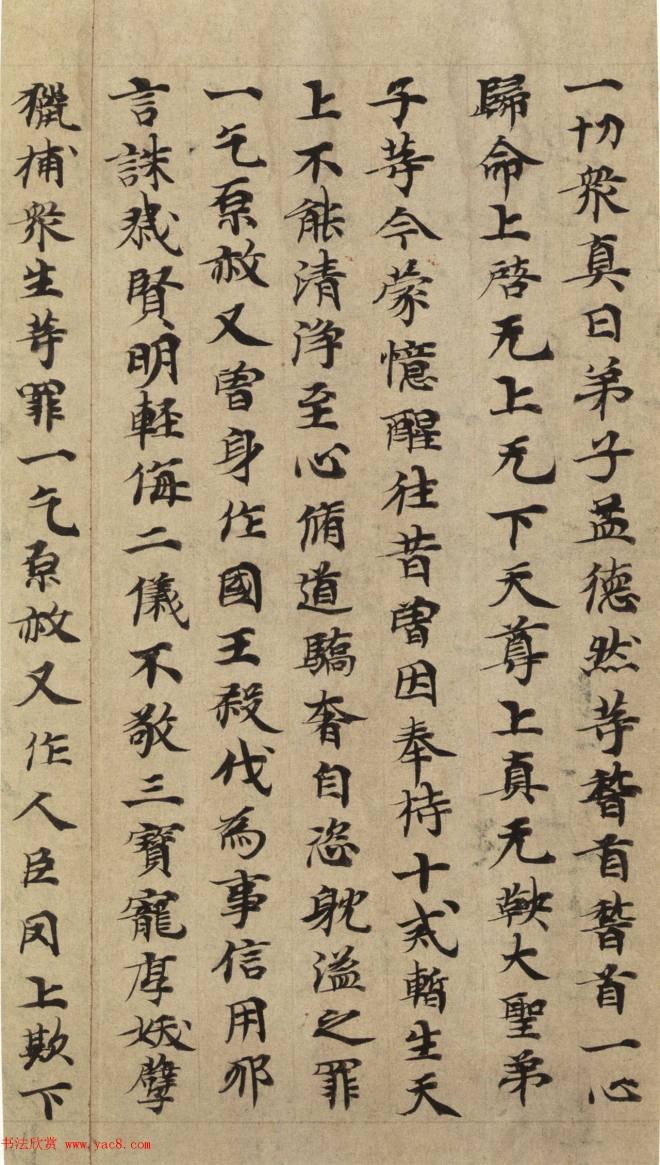 一切衆真曰弟子孟德然等稽首稽首一心
歸命上啓无上无下天尊上真无鞅大聖弟
子等今蒙憶醒往昔曾因奉持十戒暫生天
上不能清淨至心脩道驕奢自恣躭溢之罪
一乞原赦又曾身作國王殺伐為事信用邪
言誅戮賢明輕侮二儀不敬三寶寵厚妖孽
獵捕衆生等罪一乞原赦又作人臣罔上欺下
书法欣赏 www.yac8.com